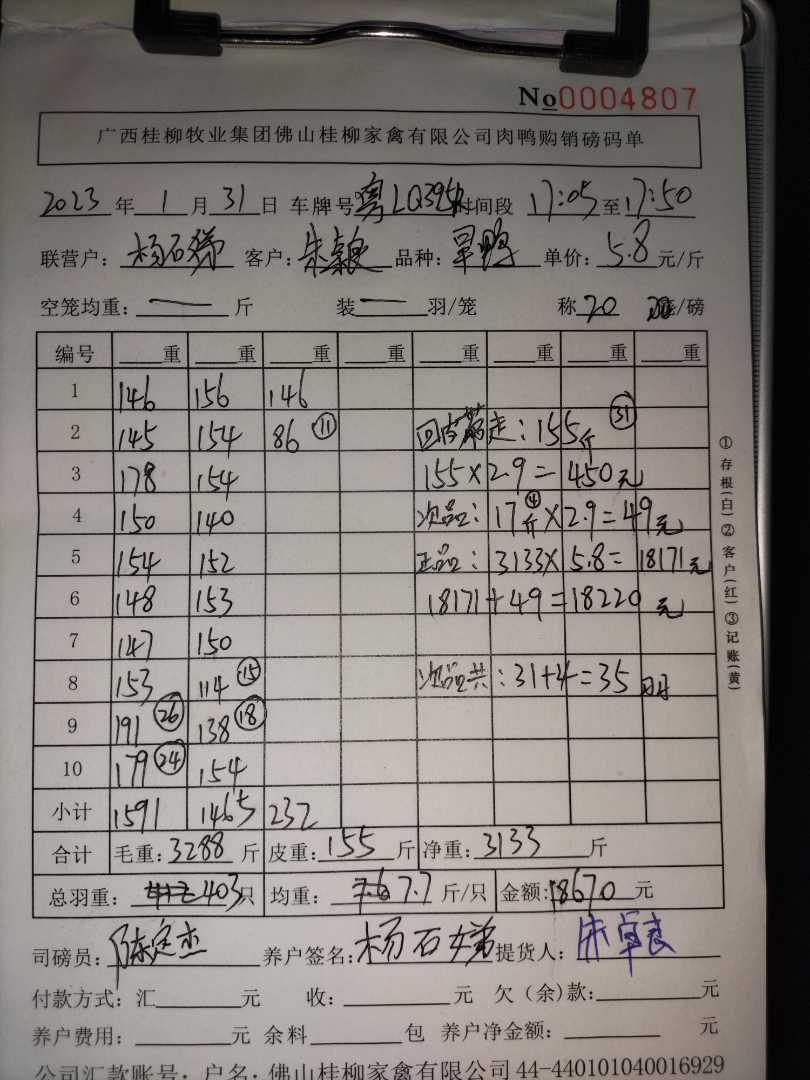 No0004807
广西桂柳牧业集团佛山桂柳家禽有限公司肉鸭购销磅码单
2023 年 1 月 31 日 车牌号 粤LQ395 时间段 17:05 至 17:50
联营户: 杨石娣 客户: 朱卓良 品种: 旱鸭 单价: 5.8 元/斤
空笼均重: — 斤 装 — 羽/笼 称 20 /磅
编号 重 重 重 重 重 重 重 重
1 146 156 146
2 145 154 86 ⑪ 回皮带走: 155斤 ㉛
3 178 154 155×2.9=450元
4 150 140 次品: 17斤④×2.9=49元
5 154 152 正品: 3133×5.8=18171元
6 148 153 18171+49=18220元
7 147 150
8 153 114 ⑮ 次品共:31+4=35
9 191 ㉖ 138 ⑱
10 179 ㉔ 154
小计 1591 1465 232
合计 毛重: 3288 斤 皮重: 155 斤 净重: 3133 斤
总羽重: 403只 均重: 7.7 斤/只 金额: 18670 元
司磅员: 陈定杰 养户签名: 杨石娣 提货人: 朱卓良
付款方式: 汇 元 收: 元 欠(余)款: 元
养户费用: 元 余料 包 养户净金额: 元
公司汇款账号: 户名: 佛山桂柳家禽有限公司 44-440101040016929
①存根(白)②客户(红)③记账(黄)